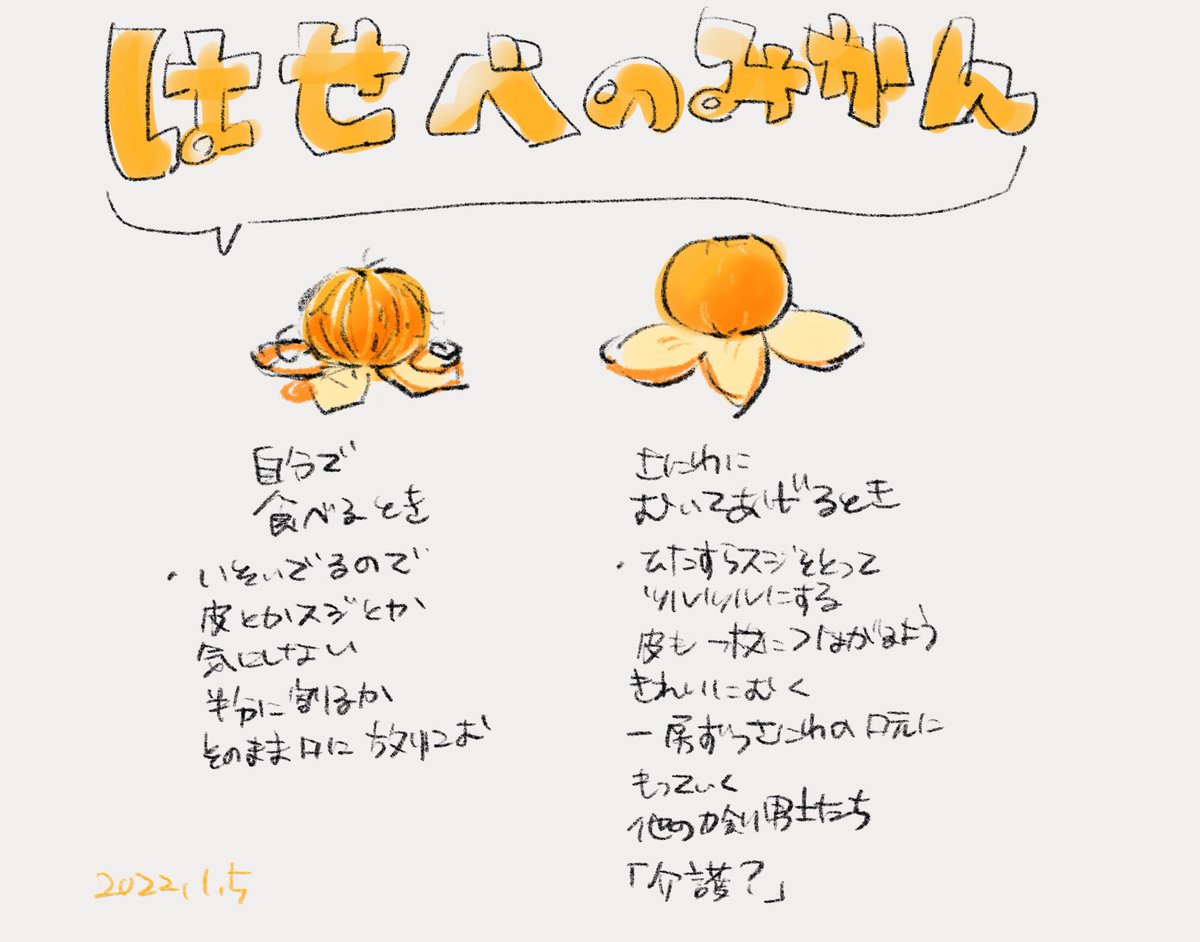 はせべのみかん
自分で
食べるとき
・いそいでるので
皮とかスジとか
気にしない
半分に割るか
そのまま口に放りこむ
さにわに
むいてあげるとき
・ひたすらスジをとって
ツルツルにする
皮も一枚につながるよう
きれいにむく
一房ずつさにわの口元に
もっていく
他の刀剣男士たち
「介護?」
2022.1.5